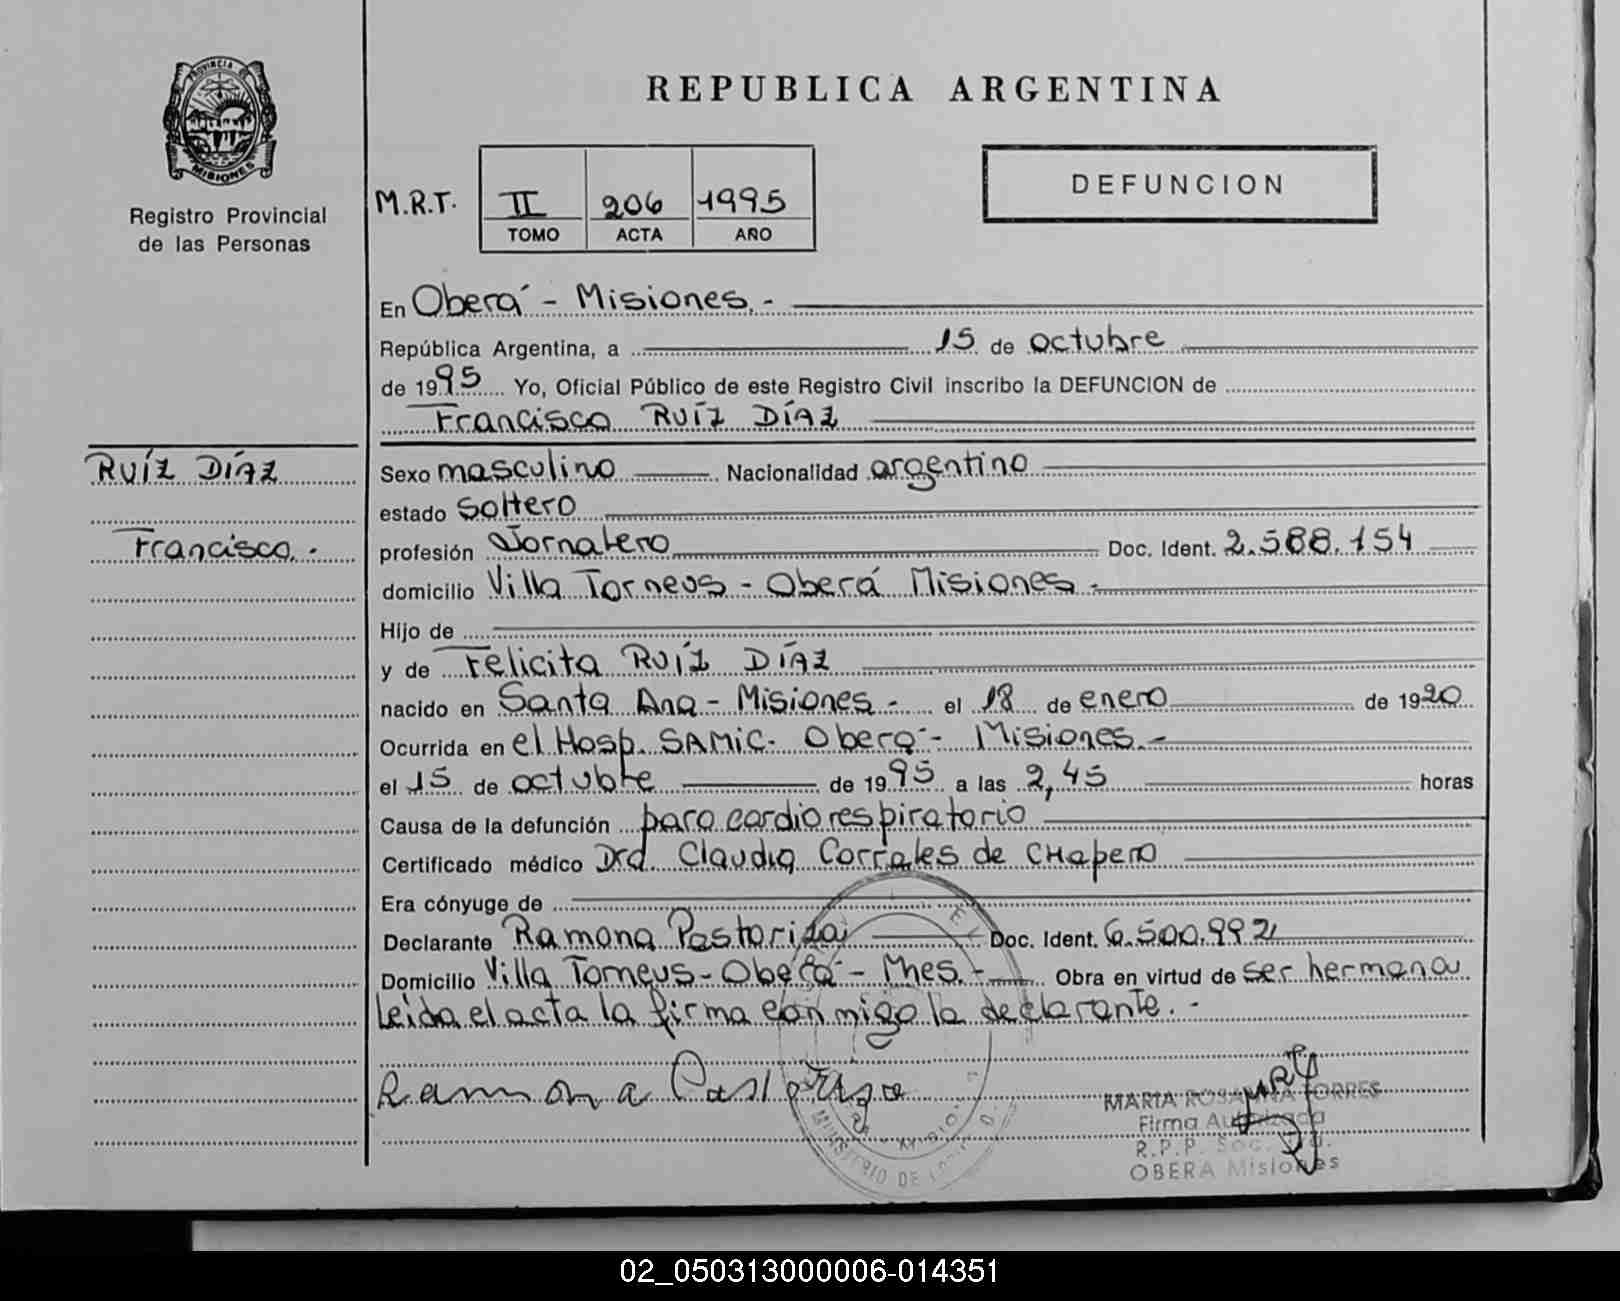 PROVINCIA DE
MISIONES
Registro Provincial
de las Personas
REPUBLICA ARGENTINA
M.R.T.
II 206 1995
TOMO ACTA AÑO
DEFUNCION
En Oberá - Misiones.-
República Argentina, a 15 de octubre
de 1995 Yo, Oficial Público de este Registro Civil inscribo la DEFUNCION de
Francisco RUÍZ DÍAZ
RUÍZ DÍAZ
Francisco.-
Sexo masculino Nacionalidad argentino
estado soltero
profesión Jornalero Doc. Ident. 2.588.154
domicilio Villa Torneus - Oberá Misiones -
Hijo de
y de Felicita RUÍZ DÍAZ
nacido en Santa Ana - Misiones - el 18 de enero de 1920
Ocurrida en el Hosp. SAMIC. Oberá - Misiones.-
el 15 de octubre de 1995 a las 2,45 horas
Causa de la defunción paro cardiorespiratorio
Certificado médico Dra. Claudia Corrales de CHapero
Era cónyuge de
Declarante Ramona Pastoriza Doc. Ident. 6.500.992
Domicilio Villa Torneus - Oberá - Mnes.- Obra en virtud de ser hermana
Leida el acta la firma conmigo la declarante.-
Ramona Pastoriza
MARIA ROSANNA TORRES
Firma Autorizada
R.P.P. Soc.
OBERA Misiones
MINISTERIO DE
02_050313000006-014351